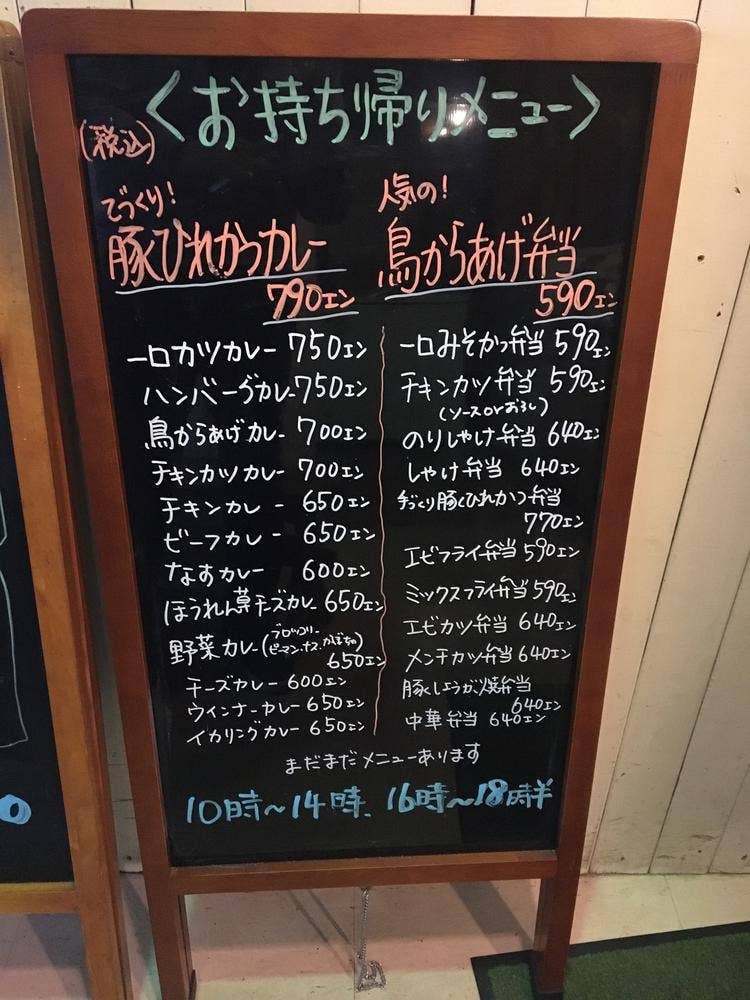 <お持ち帰りメニュー>
(税込)
でづくり!
豚ひれかつカレー
790エン
一口カツカレー 750エン
ハンバーグカレー 750エン
鳥からあげカレー 700エン
チキンカツカレー 700エン
チキンカレー 650エン
ビーフカレー 650エン
なすカレー 600エン
ほうれん草チーズカレー 650エン
野菜カレー(ブロッコリー
ピーマン、ナス、かぼちゃ)
650エン
チーズカレー 600エン
ウインナーカレー 650エン
イカリングカレー 650エン
人気の!
鳥からあげ弁当
590エン
一口みそかつ弁当 590エン
チキンカツ弁当 590エン
(ソースorおろし)
のりしゃけ弁当 640エン
しゃけ弁当 640エン
手づくり豚ひれかつ弁当
770エン
エビフライ弁当 590エン
ミックスフライ弁当 590エン
エビカツ弁当 640エン
メンチカツ弁当 640エン
豚しょうが焼弁当
640エン
中華弁当 640エン
まだまだメニューあります
10時~14時、16時~18時半